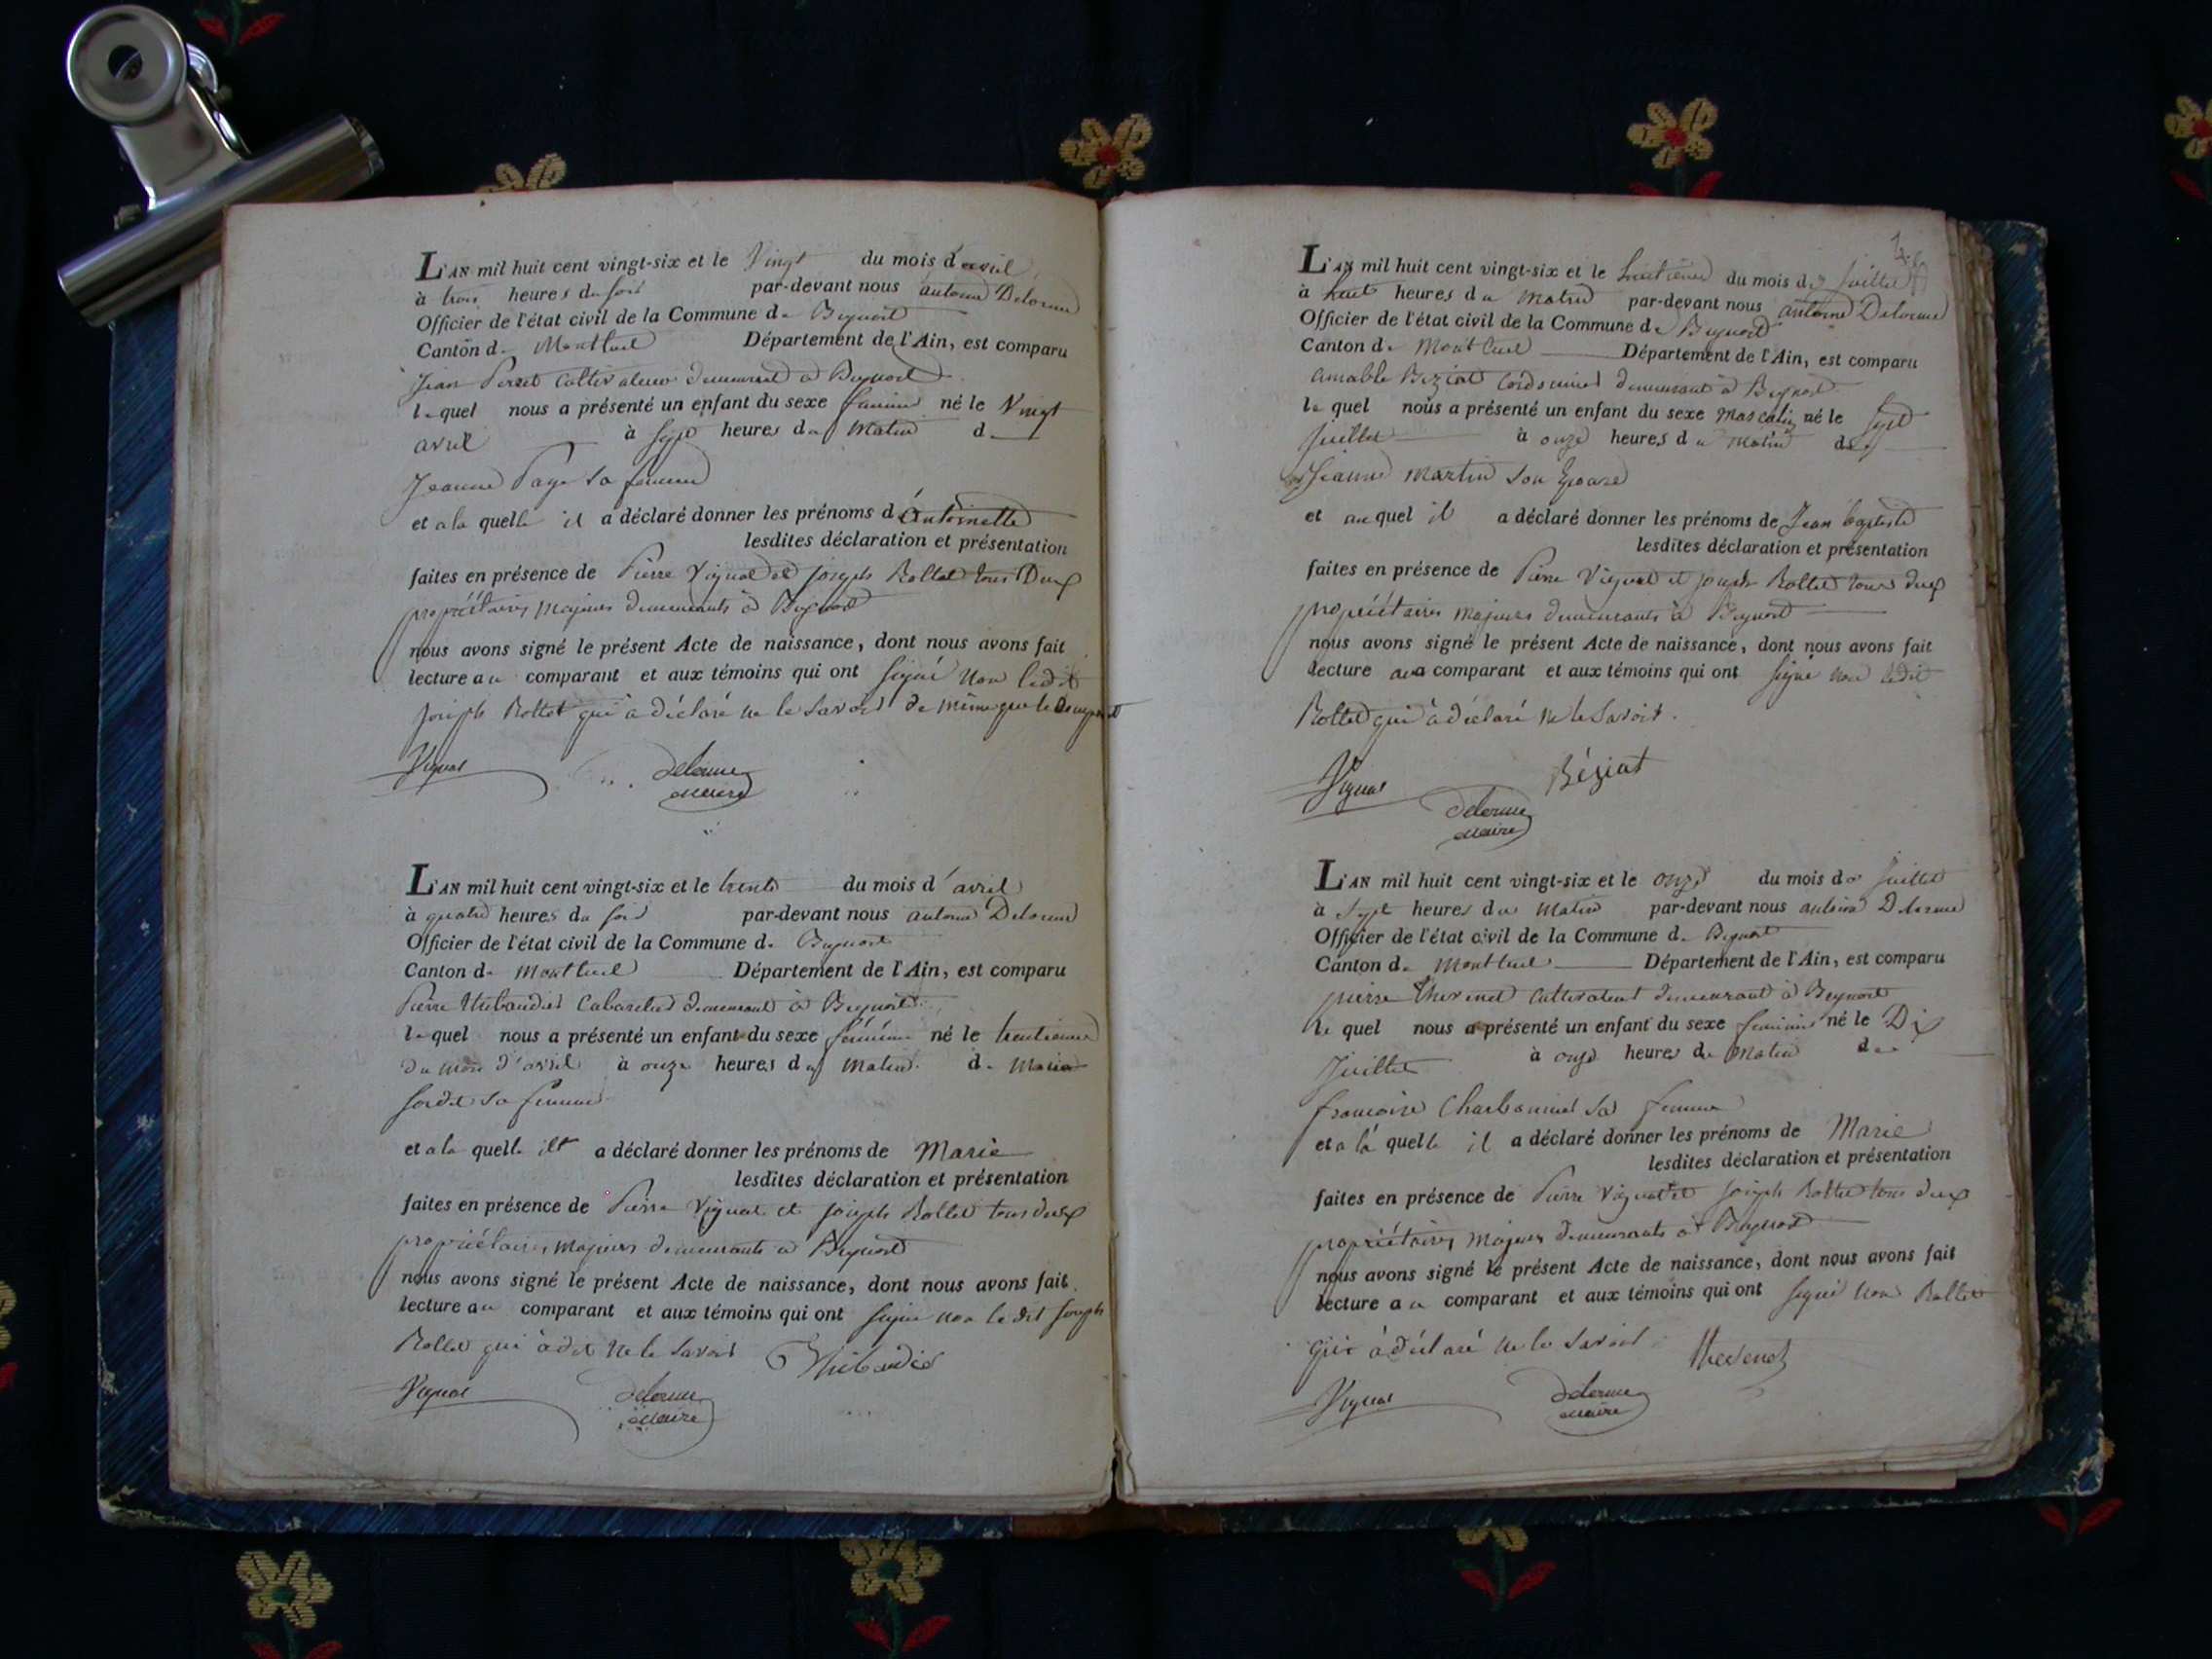 L'AN mil huit cent vingt-six et le Vingt du mois d'avril
à trois heures du soir par-devant nous antoine Delorme
Officier de l'état civil de la Commune de Beynost
Canton de Montluel Département de l'Ain, est comparu
Jean Perret Cultivateur demeurant à Beynost
lequel nous a présenté un enfant du sexe féminin né le Vingt
avril à sept heures du Matin de
Jeanne Page sa femme
et a la quelle il a déclaré donner les prénoms d'Antoinette
lesdites déclaration et présentation
faites en présence de Pierre Vignat et joseph Rollet tous Deux
propriétaires majeurs demeurants à Beynost
nous avons signé le présent Acte de naissance, dont nous avons fait
lecture au comparant et aux témoins qui ont signé non ledit
joseph Rollet qui à déclaré ne le savoir de même que le Comparant
Vignat Delorme
maire
L'AN mil huit cent vingt-six et le trente du mois d'avril
à quatre heures du soir par-devant nous antoine Delorme
Officier de l'état civil de la Commune de Beynost
Canton de Montluel Département de l'Ain, est comparu
Pierre Thibaudier Cabaretier demeurant à Beynost
lequel nous a présenté un enfant du sexe féminin né le trentieme
du mois d'avril à onze heures du Matin de Marie
sa femme
et a la quelle il a déclaré donner les prénoms de Marie
lesdites déclaration et présentation
faites en présence de Pierre Vignat et joseph Rollet tous deux
propriétaires majeurs demeurants à Beynost
nous avons signé le présent Acte de naissance, dont nous avons fait
lecture au comparant et aux témoins qui ont signé non le dit joseph
Rollet qui à dit ne le savoir Thibaudier
Vignat Delorme
maire
L'AN mil huit cent vingt-six et le huitieme du mois de juillet
à huit heures du Matin par-devant nous antoine Delorme
Officier de l'état civil de la Commune de Beynost
Canton de Montluel Département de l'Ain, est comparu
amable Beziat Cordonnier demeurant à Beynost
lequel nous a présenté un enfant du sexe masculin né le sept
juillet à onze heures du matin de
Jeanne Martin son Epouse
et auquel il a déclaré donner les prénoms de Jean baptiste
lesdites déclaration et présentation
faites en présence de Pierre Vignat et joseph Rollet tous deux
propriétaires majeurs demeurants à Beynost
nous avons signé le présent Acte de naissance, dont nous avons fait
lecture au comparant et aux témoins qui ont signé non ledit
Rollet qui à déclaré ne le savoir.
Vignat Béziat
Delorme
maire
L'AN mil huit cent vingt-six et le onze du mois de juillet
à sept heures du Matin par-devant nous antoine Delorme
Officier de l'état civil de la Commune de Beynost
Canton de Montluel Département de l'Ain, est comparu
pierre thevenet Cultivateur demeurant à Beynost
lequel nous a présenté un enfant du sexe feminin né le Dix
Juillet à onze heures du Matin de
francoise Charbonnet sa femme
et a la quelle il a déclaré donner les prénoms de Marie
lesdites déclaration et présentation
faites en présence de Pierre Vignat et joseph Rollet tous deux
propriétaires majeurs demeurants à Beynost
nous avons signé le présent Acte de naissance, dont nous avons fait
lecture au comparant et aux témoins qui ont signé non Rollet
qui à déclaré ne le savoir thevenet
Vignat Delorme
maire